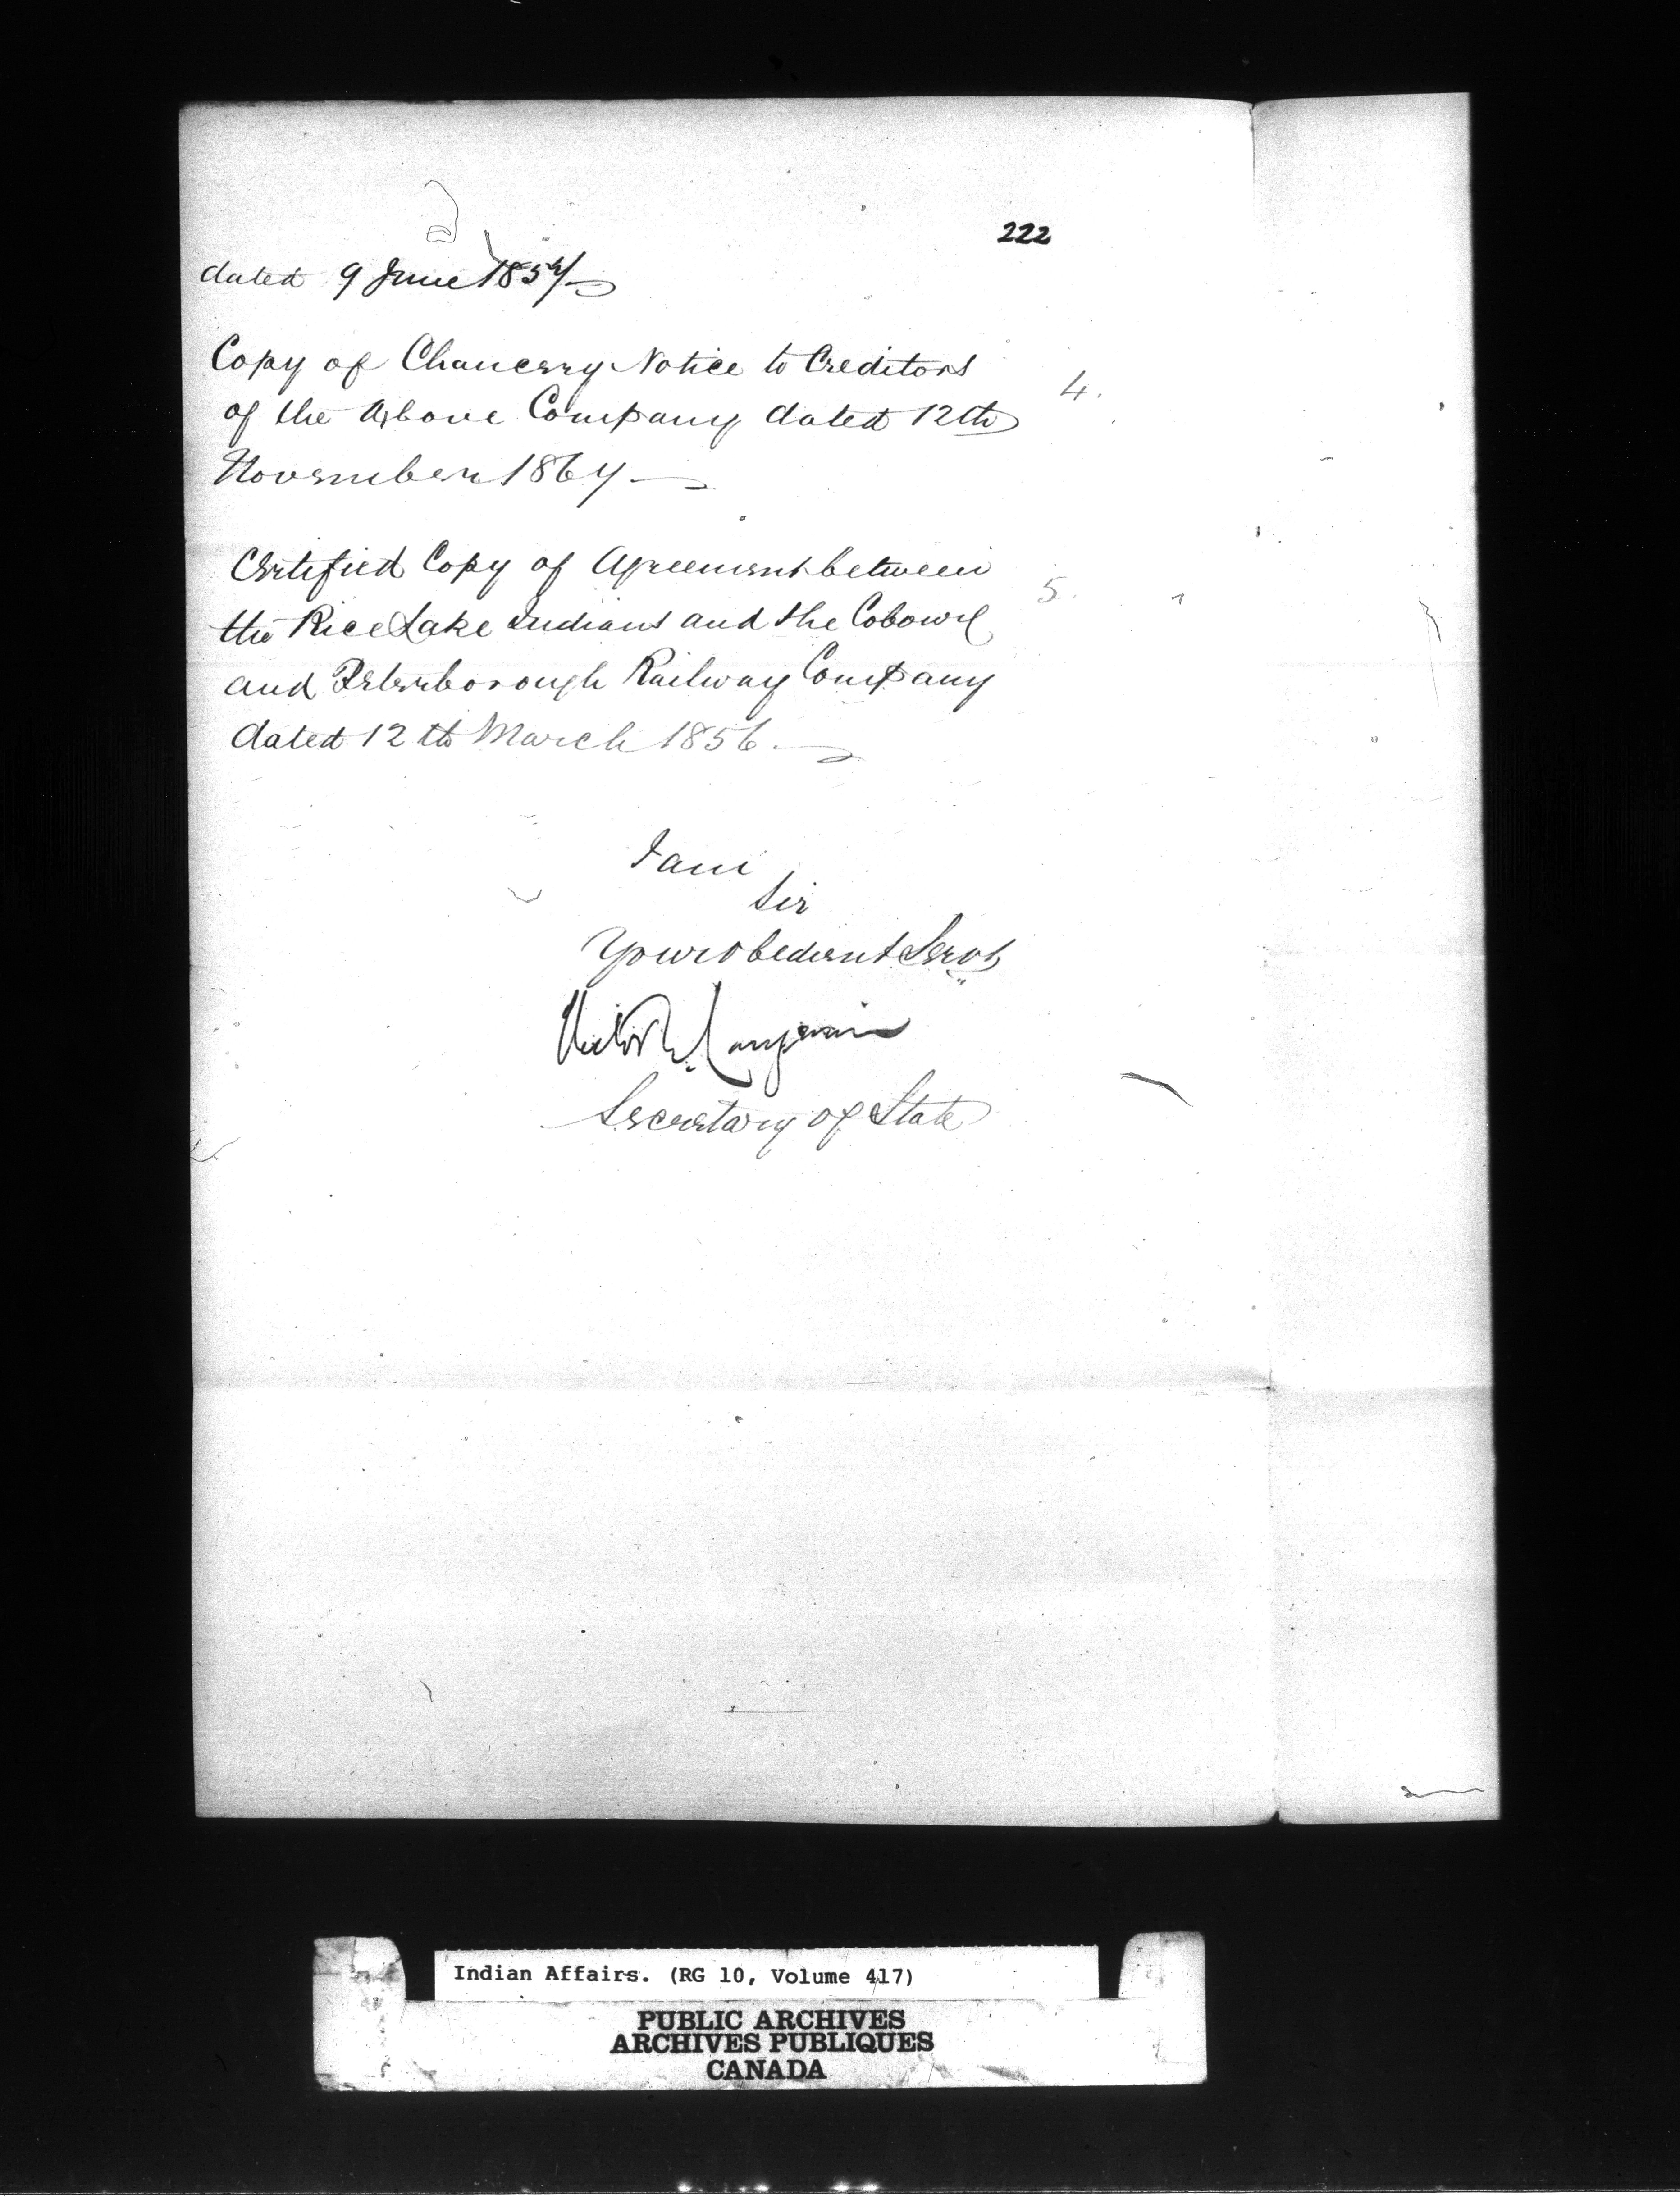 222
dated 9 June 1854
Copy of Chancery Notice to Creditors
4.
of the Above Company dated 12th
November 1867
Certified Copy of Agreement between
5.
the Rice Lake Indians and the Cobourg
and Peterborough Railway Company
dated 12th March 1856.
I am
Sir
Your obedient Servt
Hector L. Langevin
Secretary of State
Indian Affairs. (RG 10, Volume 417)
PUBLIC ARCHIVES
ARCHIVES PUBLIQUES
CANADA